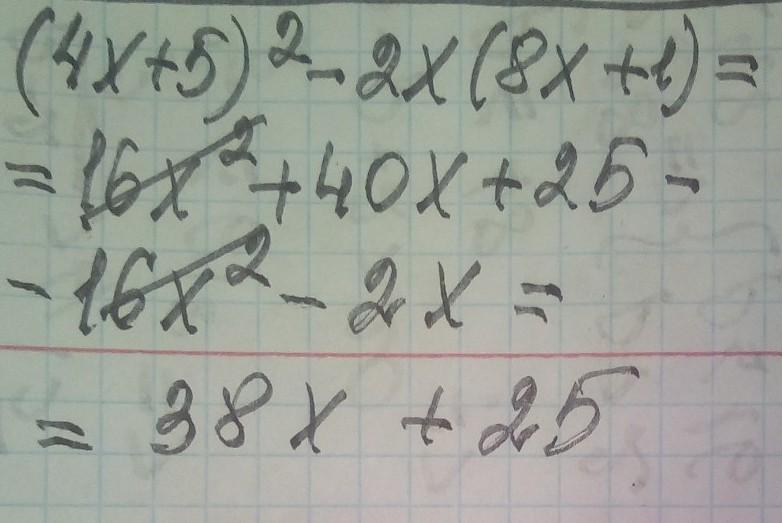 (4x+5)² - 2x(8x+1) =
= 16x² + 40x + 25 -
- 16x² - 2x =
= 38x + 25